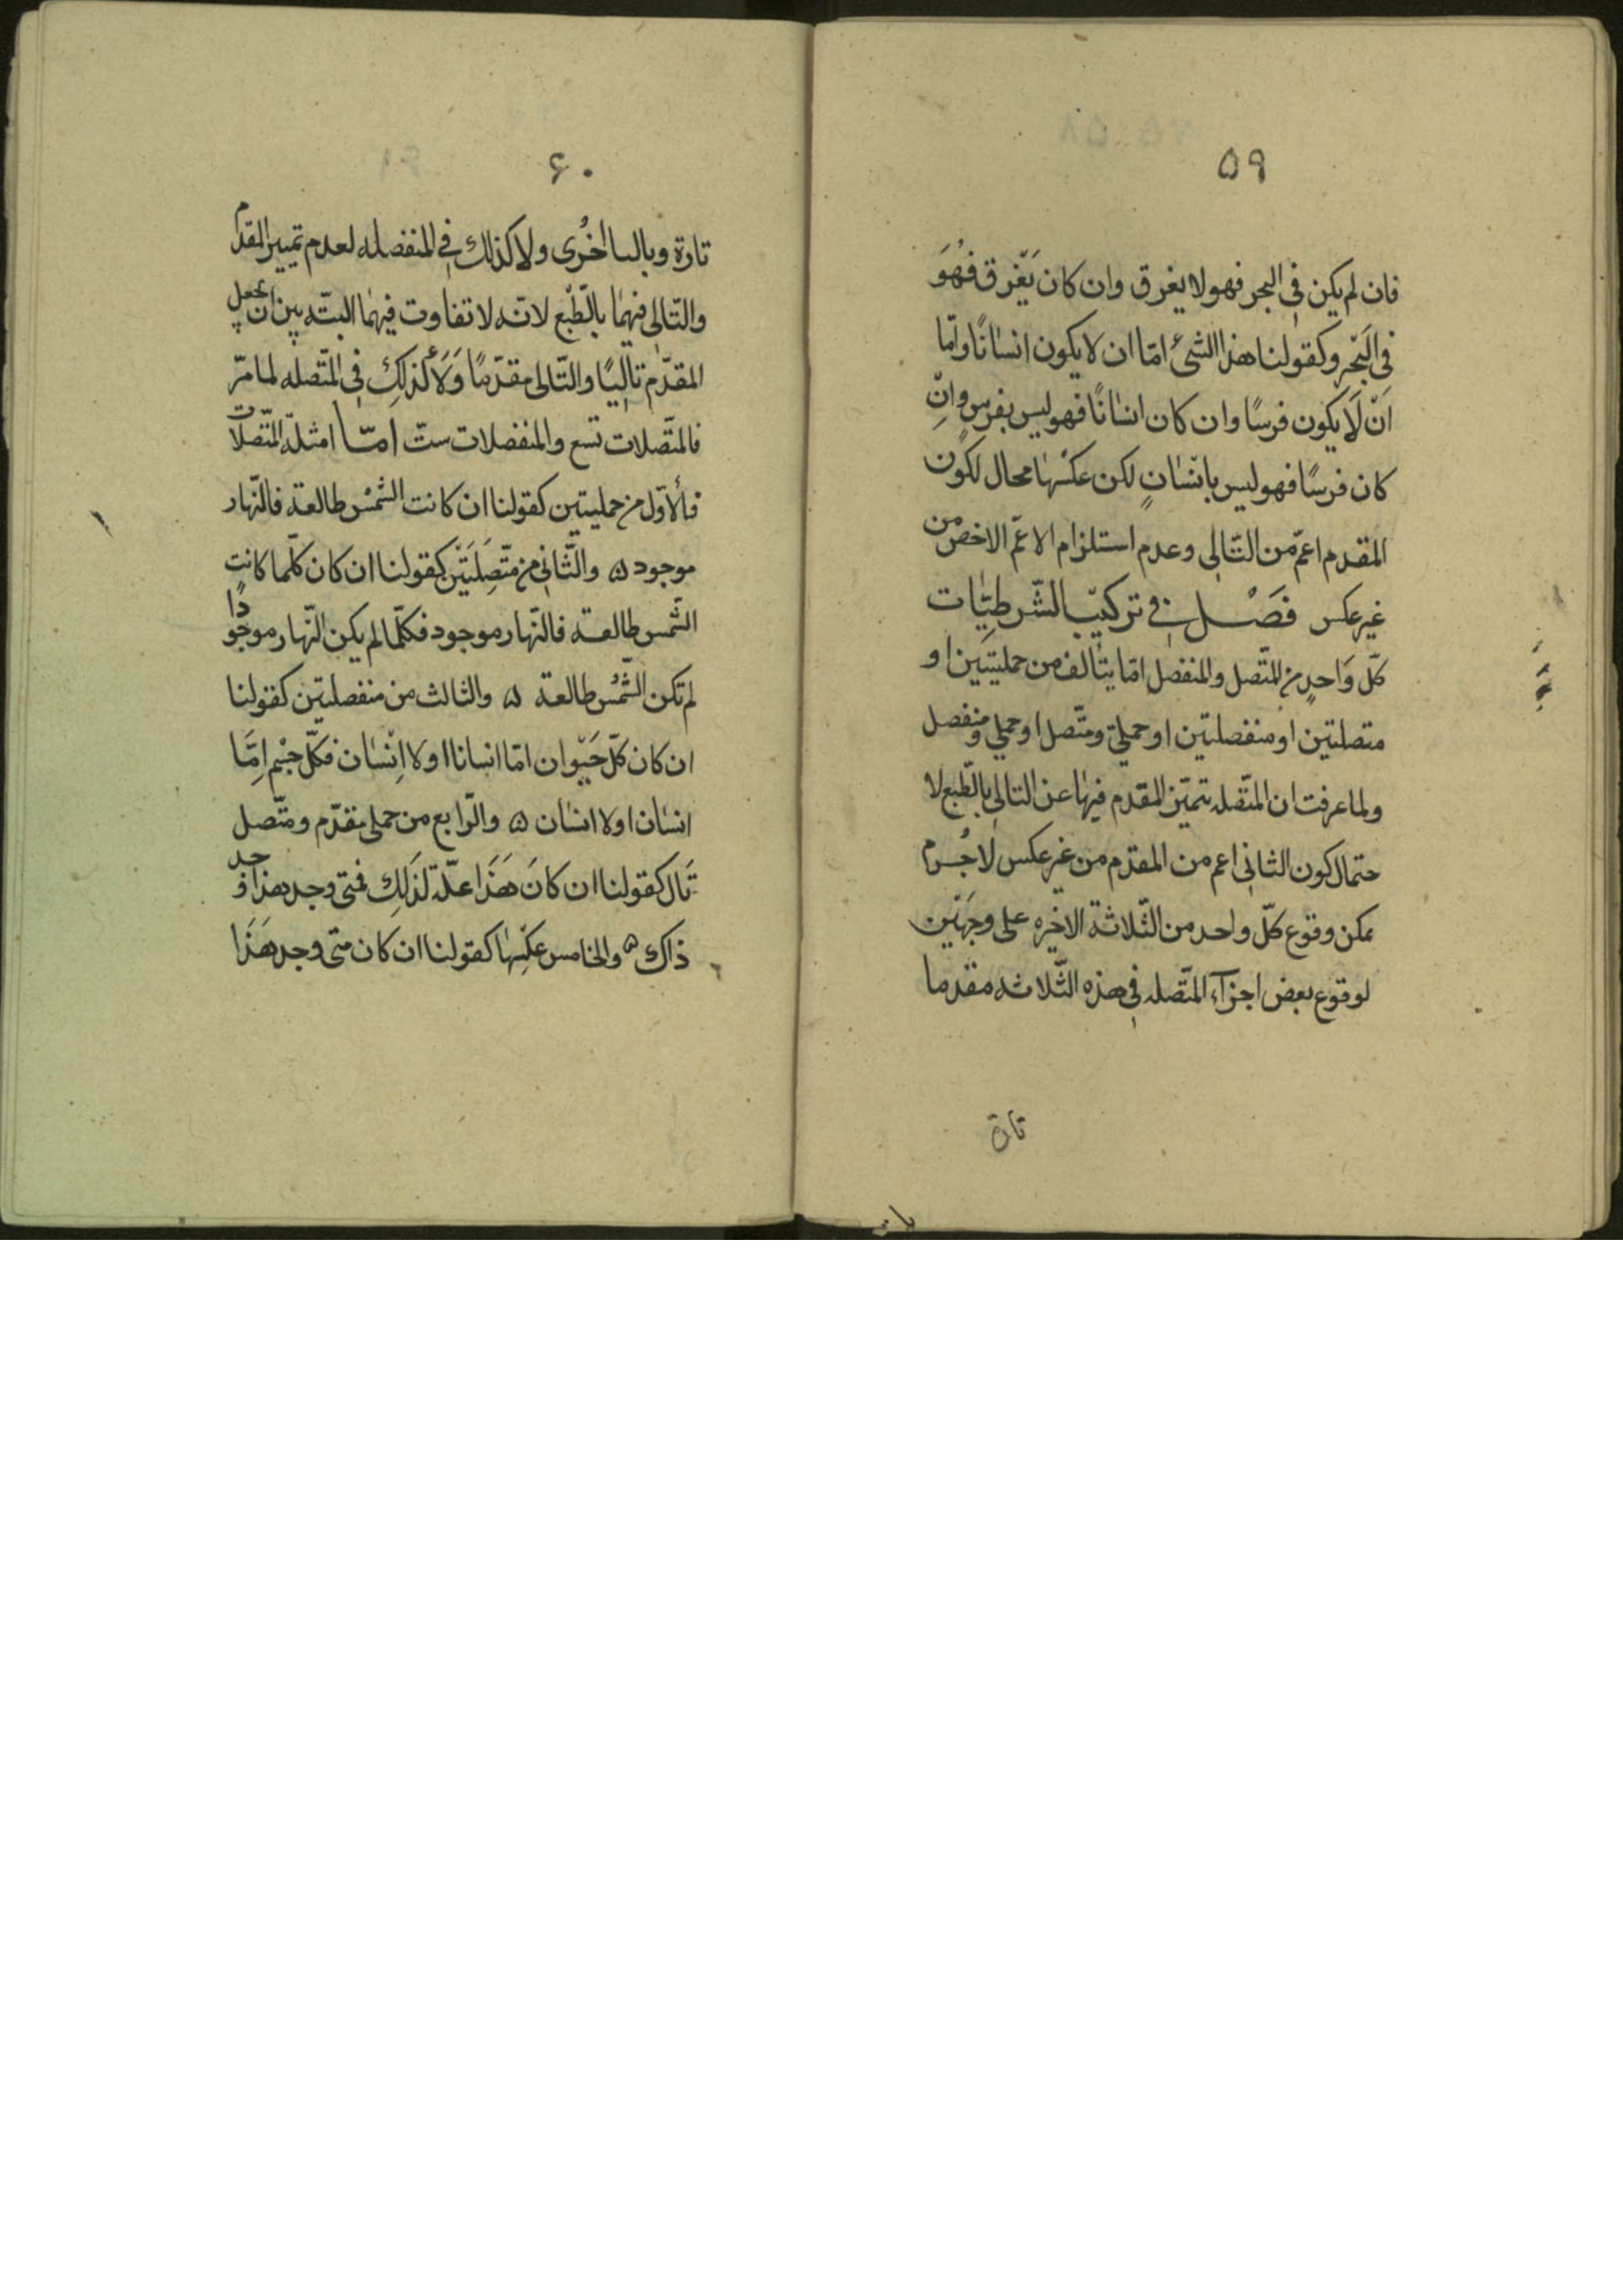 ٥٩
فان لم يكن فى البحر فهو لا يغرق وان كان يَغْرق فهُوَ
فِى البَحْر وكقولنا هذا الشئ امّا ان لا يكون انسَانًا وامّا
اَنْ لَا يكون فرسًا وان كان انسَانًا فهو ليس بفرس وانْ
كان فرسًا فهو ليس بانسَانٍ لكن عكسُها محال لكون
المقدم اعمّ من التّالى وعدم استلزام الاعمّ الاخصّ من
غير عكس فصْل فى تركيب الشّرطيّات
كلّ وَاحدٍ من المتّصل والمنفصل امّا يتالف من حمليتَين او
متصلتين او منفصلتين او حملىّ ومتّصل او حملي ومنفصل
ولما عرفت ان المتّصله تتميّز المقدم فيها عن التالى بالطّبع لا
حتمال كون الثانى اعم من المقدّم من غير عكس لا جُرم
يمكن وقوع كلّ واحد من الثّلاثة الاخيره على وجهَيْن
لوقوع بعض اجزآء المتّصله فى هذه الثّلاثه مقدما
تارة
٦٠
تارة وبالـ اخُرى ولا كذلك فى المنفصله لعدم تمييز المقدم
والتّالى فيهمَا بالطّبع لانه لا تفاوت فيهمَا البتّه بين ان يجعل
المقدّم تاليًا والتّالى مقدّمًا وَلَا كذلِك فى المتّصله لما مرّ
فالمتّصلات تسع والمنفصلات ستّ امّا امثلة المتّصلات
فالأوّل من حمليتين كقولنا ان كانت الشمْس طالعة فالنّهار
موجود ۵ والثّانى من متّصِلَتَيْن كقولنا ان كان كلّما كانت
الشّمس طالعة فالنّهار موجود فكلّما لم يكن النّهار موجودًا
لم تكن الشّمْس طالعة ۵ والثالث من منفصلتين كقولنا
ان كان كلّ حَيْوان امّا انسانا او لا انْسَان فكلّ جسْم امَّا
انسَان او لا انسَان ۵ والرّابع من حملى مقدّم ومتّصل
تال كقولنا ان كانَ هَذَا علّة لذَلِك فمتى وجد هذا وجد
ذاك ۵ والخامس عكسُها كقولنا ان كان متى وجد هَذَا